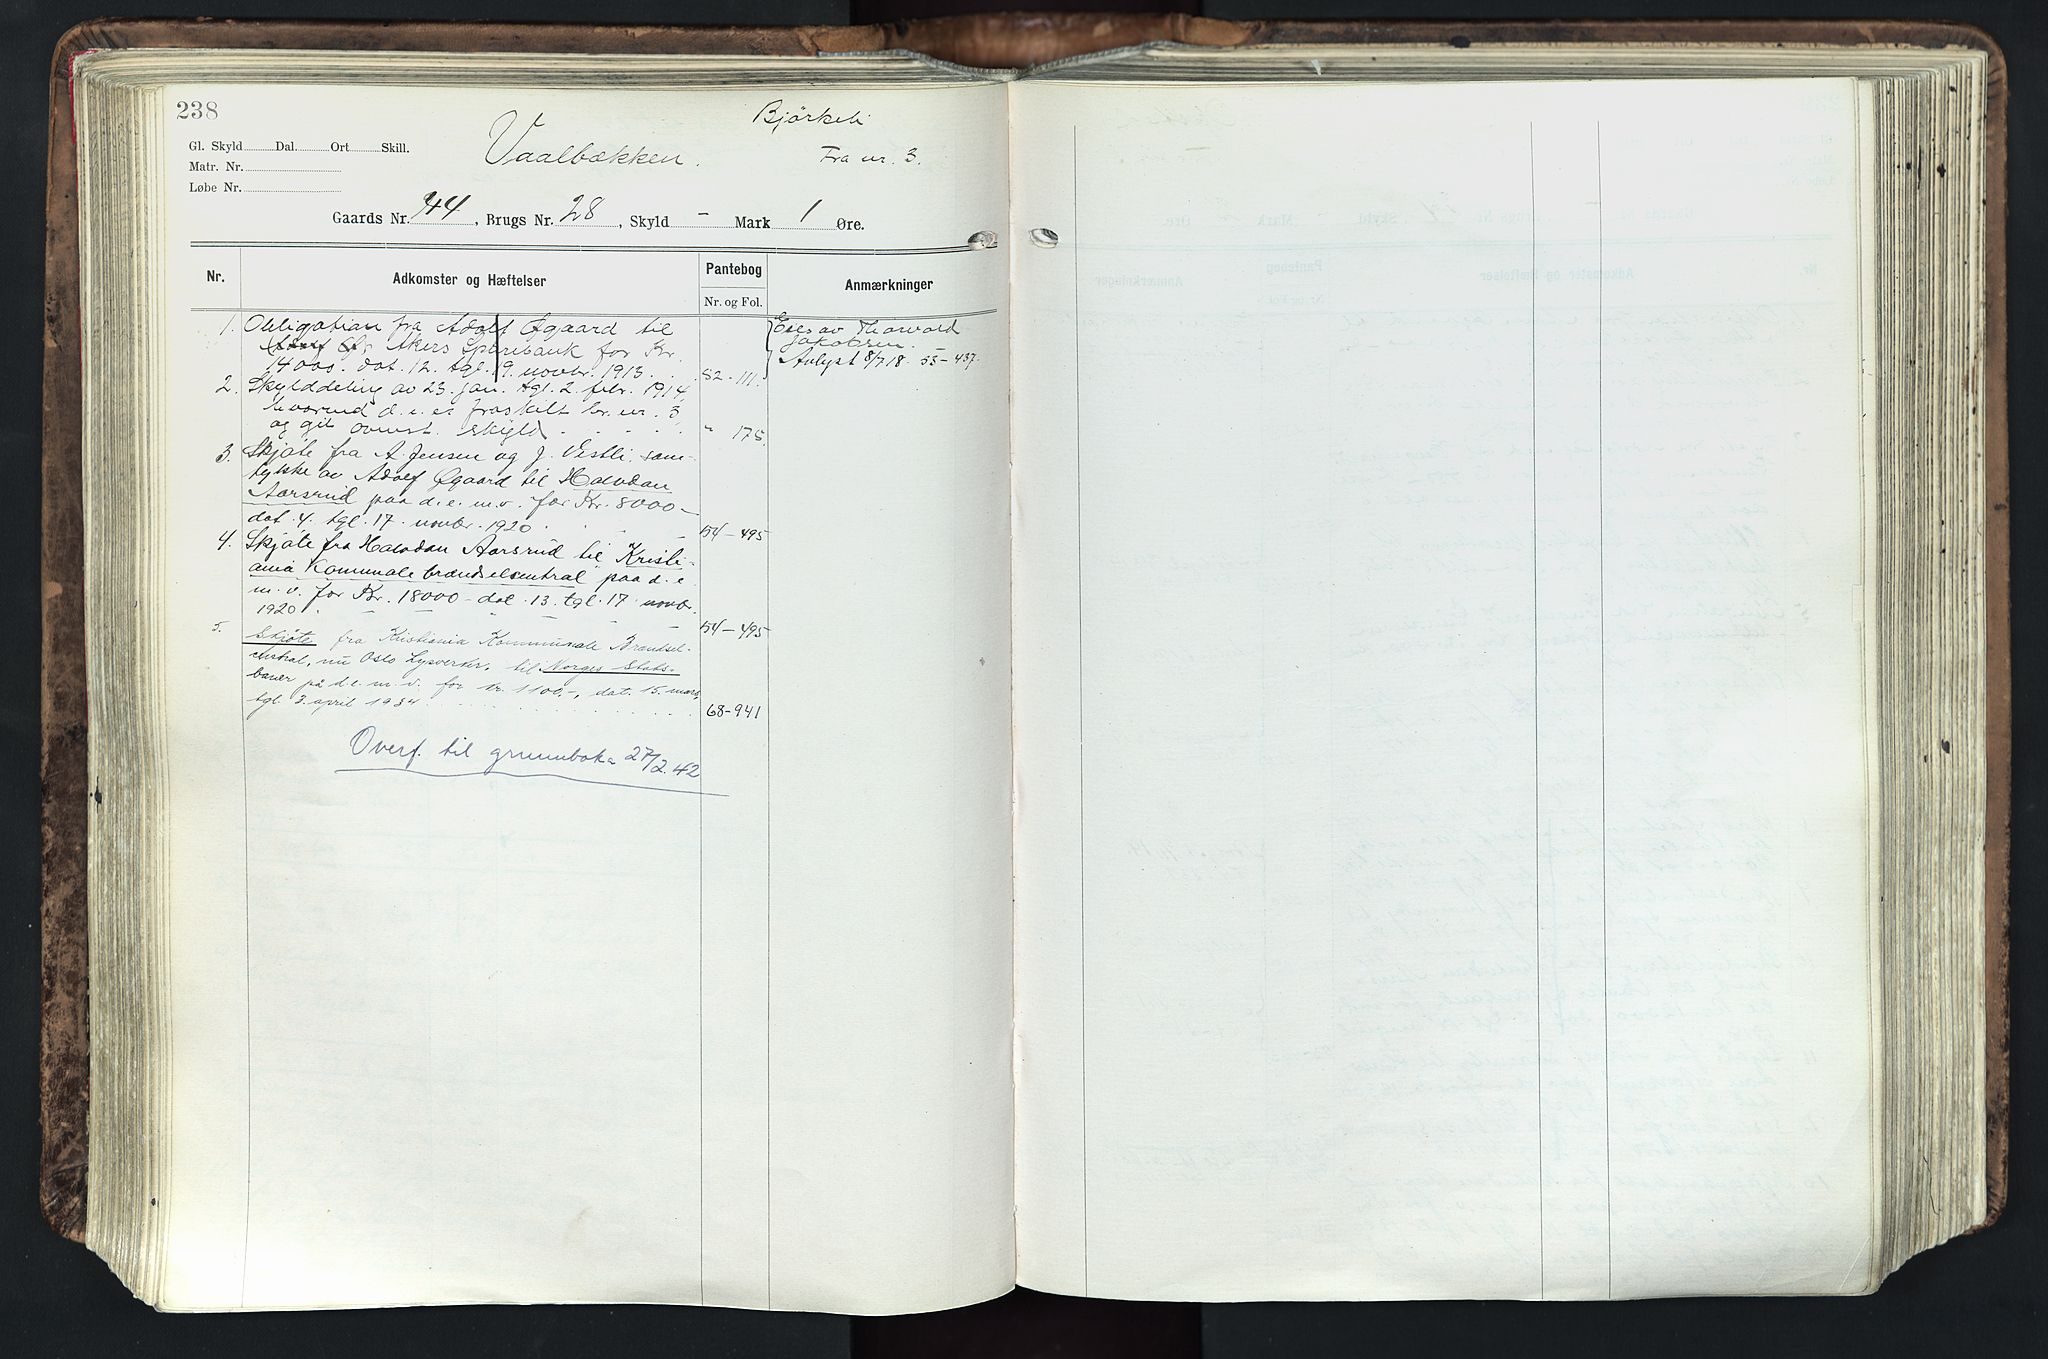 238
Bjørkeli
Vaalbækken.
Fra nr. 3.
Gl. Skyld Dal. Ort Skill.
Matr. Nr.
Løbe Nr.
Gaards Nr. 44, Brugs Nr. 28, Skyld - Mark 1 Øre.
Nr. Adkomster og Hæftelser Pantebog Anmærkninger
Nr. og Fol.
1. Obligation fra Adolf Øgaard til Eies av Thorvald
Akers Sparebank for Kr. Jakobsen.
14000. dat. 12. tgl. 19. novbr. 1913. 52-111. Avlyst 8/7 18. 53-437.
2. Skylddeling av 23. jan. tgl. 2. febr. 1914,
hvorved d. e. er fraskilt br. nr. 3
og git ovenst. skyld " 175.
3. Skjøte fra A. Jensen og J. Vestli sam-
tykke av Adolf Øgaard til Halvdan
Aarsrud paa d. e. m.v. for Kr. 8000-
dat. 4. tgl. 17. novbr. 1920 54-495
4. Skjøte fra Halvdan Aarsrud til Kristi-
ania Kommunale brændselcentral paa d. e.
m.v. for Kr. 18000- dat. 13. tgl. 17. novbr.
1920. 54-495
5. Skjøte fra Kristiania Kommunale Brændsel-
central, nu Oslo Lysverker, til Norges Stats-
baner på d. e. m. v. for kr. 1100.-, dat. 15. mars,
tgl. 3. april 1934 68-941
Overf. til grunnboka 27/2.42